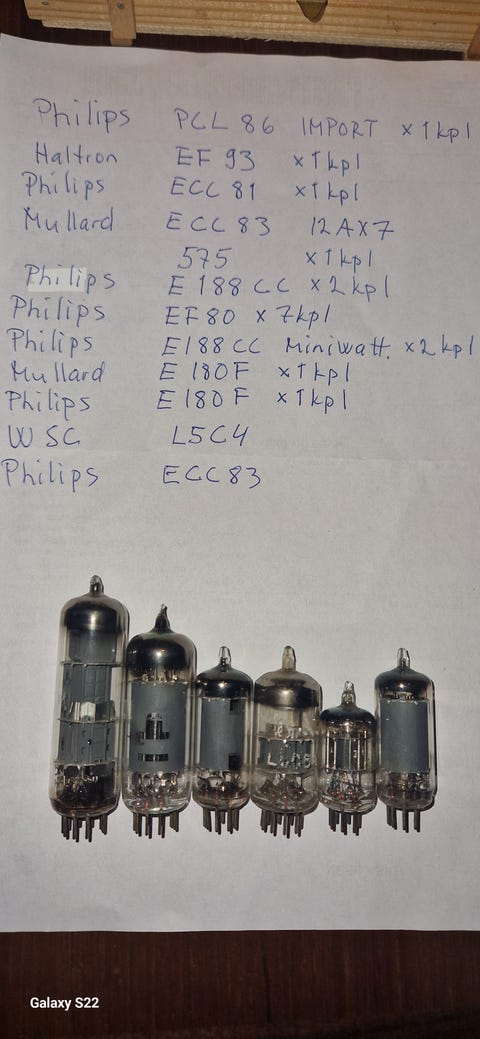 Philips PCL 86 IMPORT x 1 kpl
Haltron EF 93 x 1 kpl
Philips ECC 81 x 1 kpl
Mullard ECC 83 12AX7
575 x 1 kpl
Philips E 188 CC x 2 kpl
Philips EF80 x 7kpl
Philips E188 CC Miniwatt. x 2 kpl
Mullard E 180F x 1 kpl
Philips E 180 F x 1 kpl
WSG L5C4
Philips ECC 83
Galaxy S22